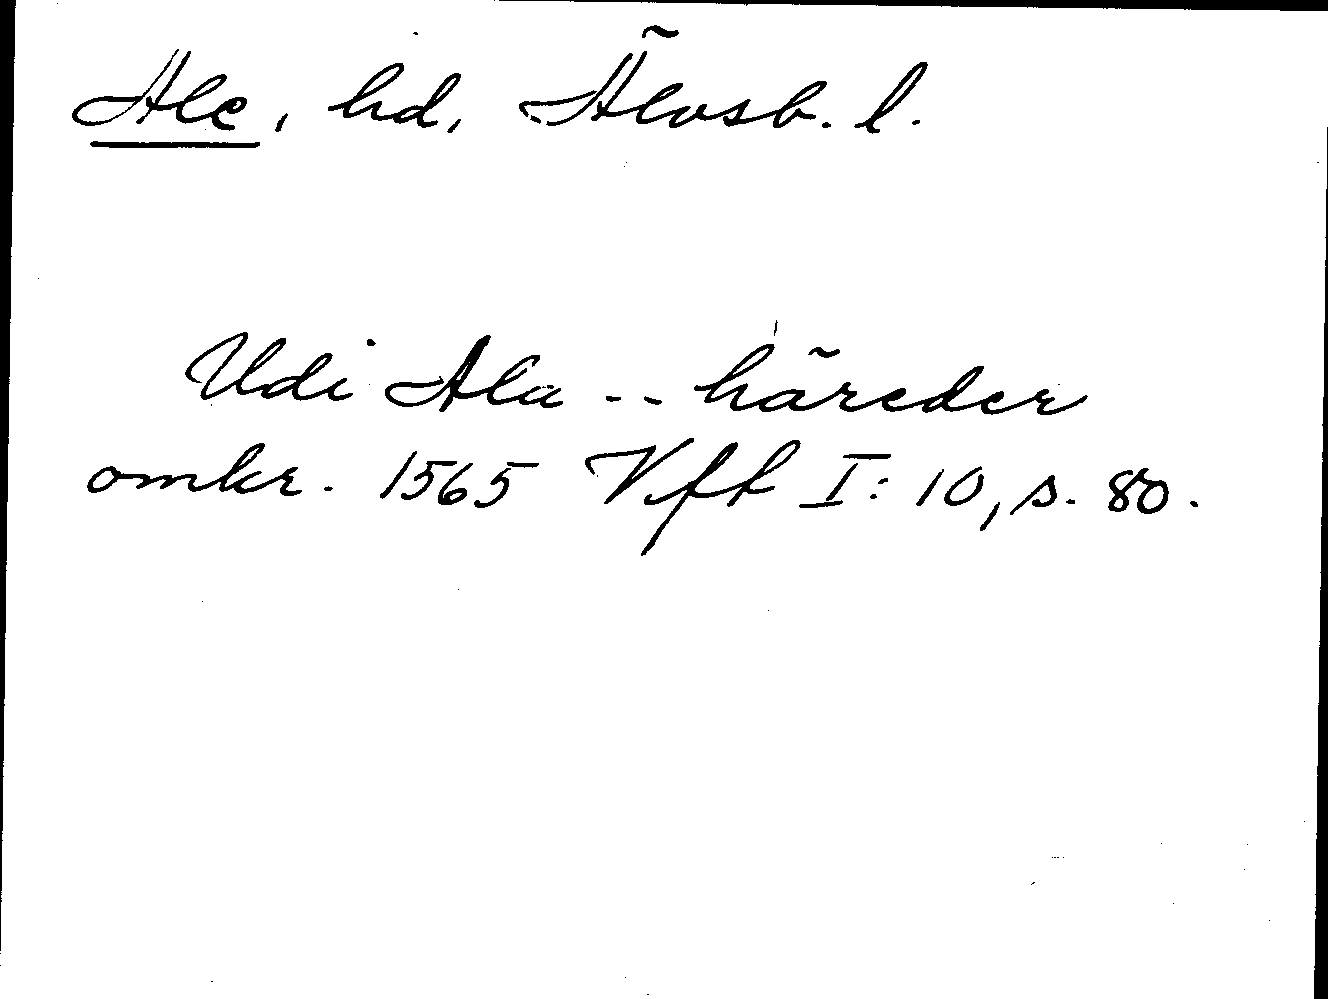 Ale, hd, Älvsb. l.
Udi Ala -- häreder
omkr. 1565 Vff I: 10, s. 80.